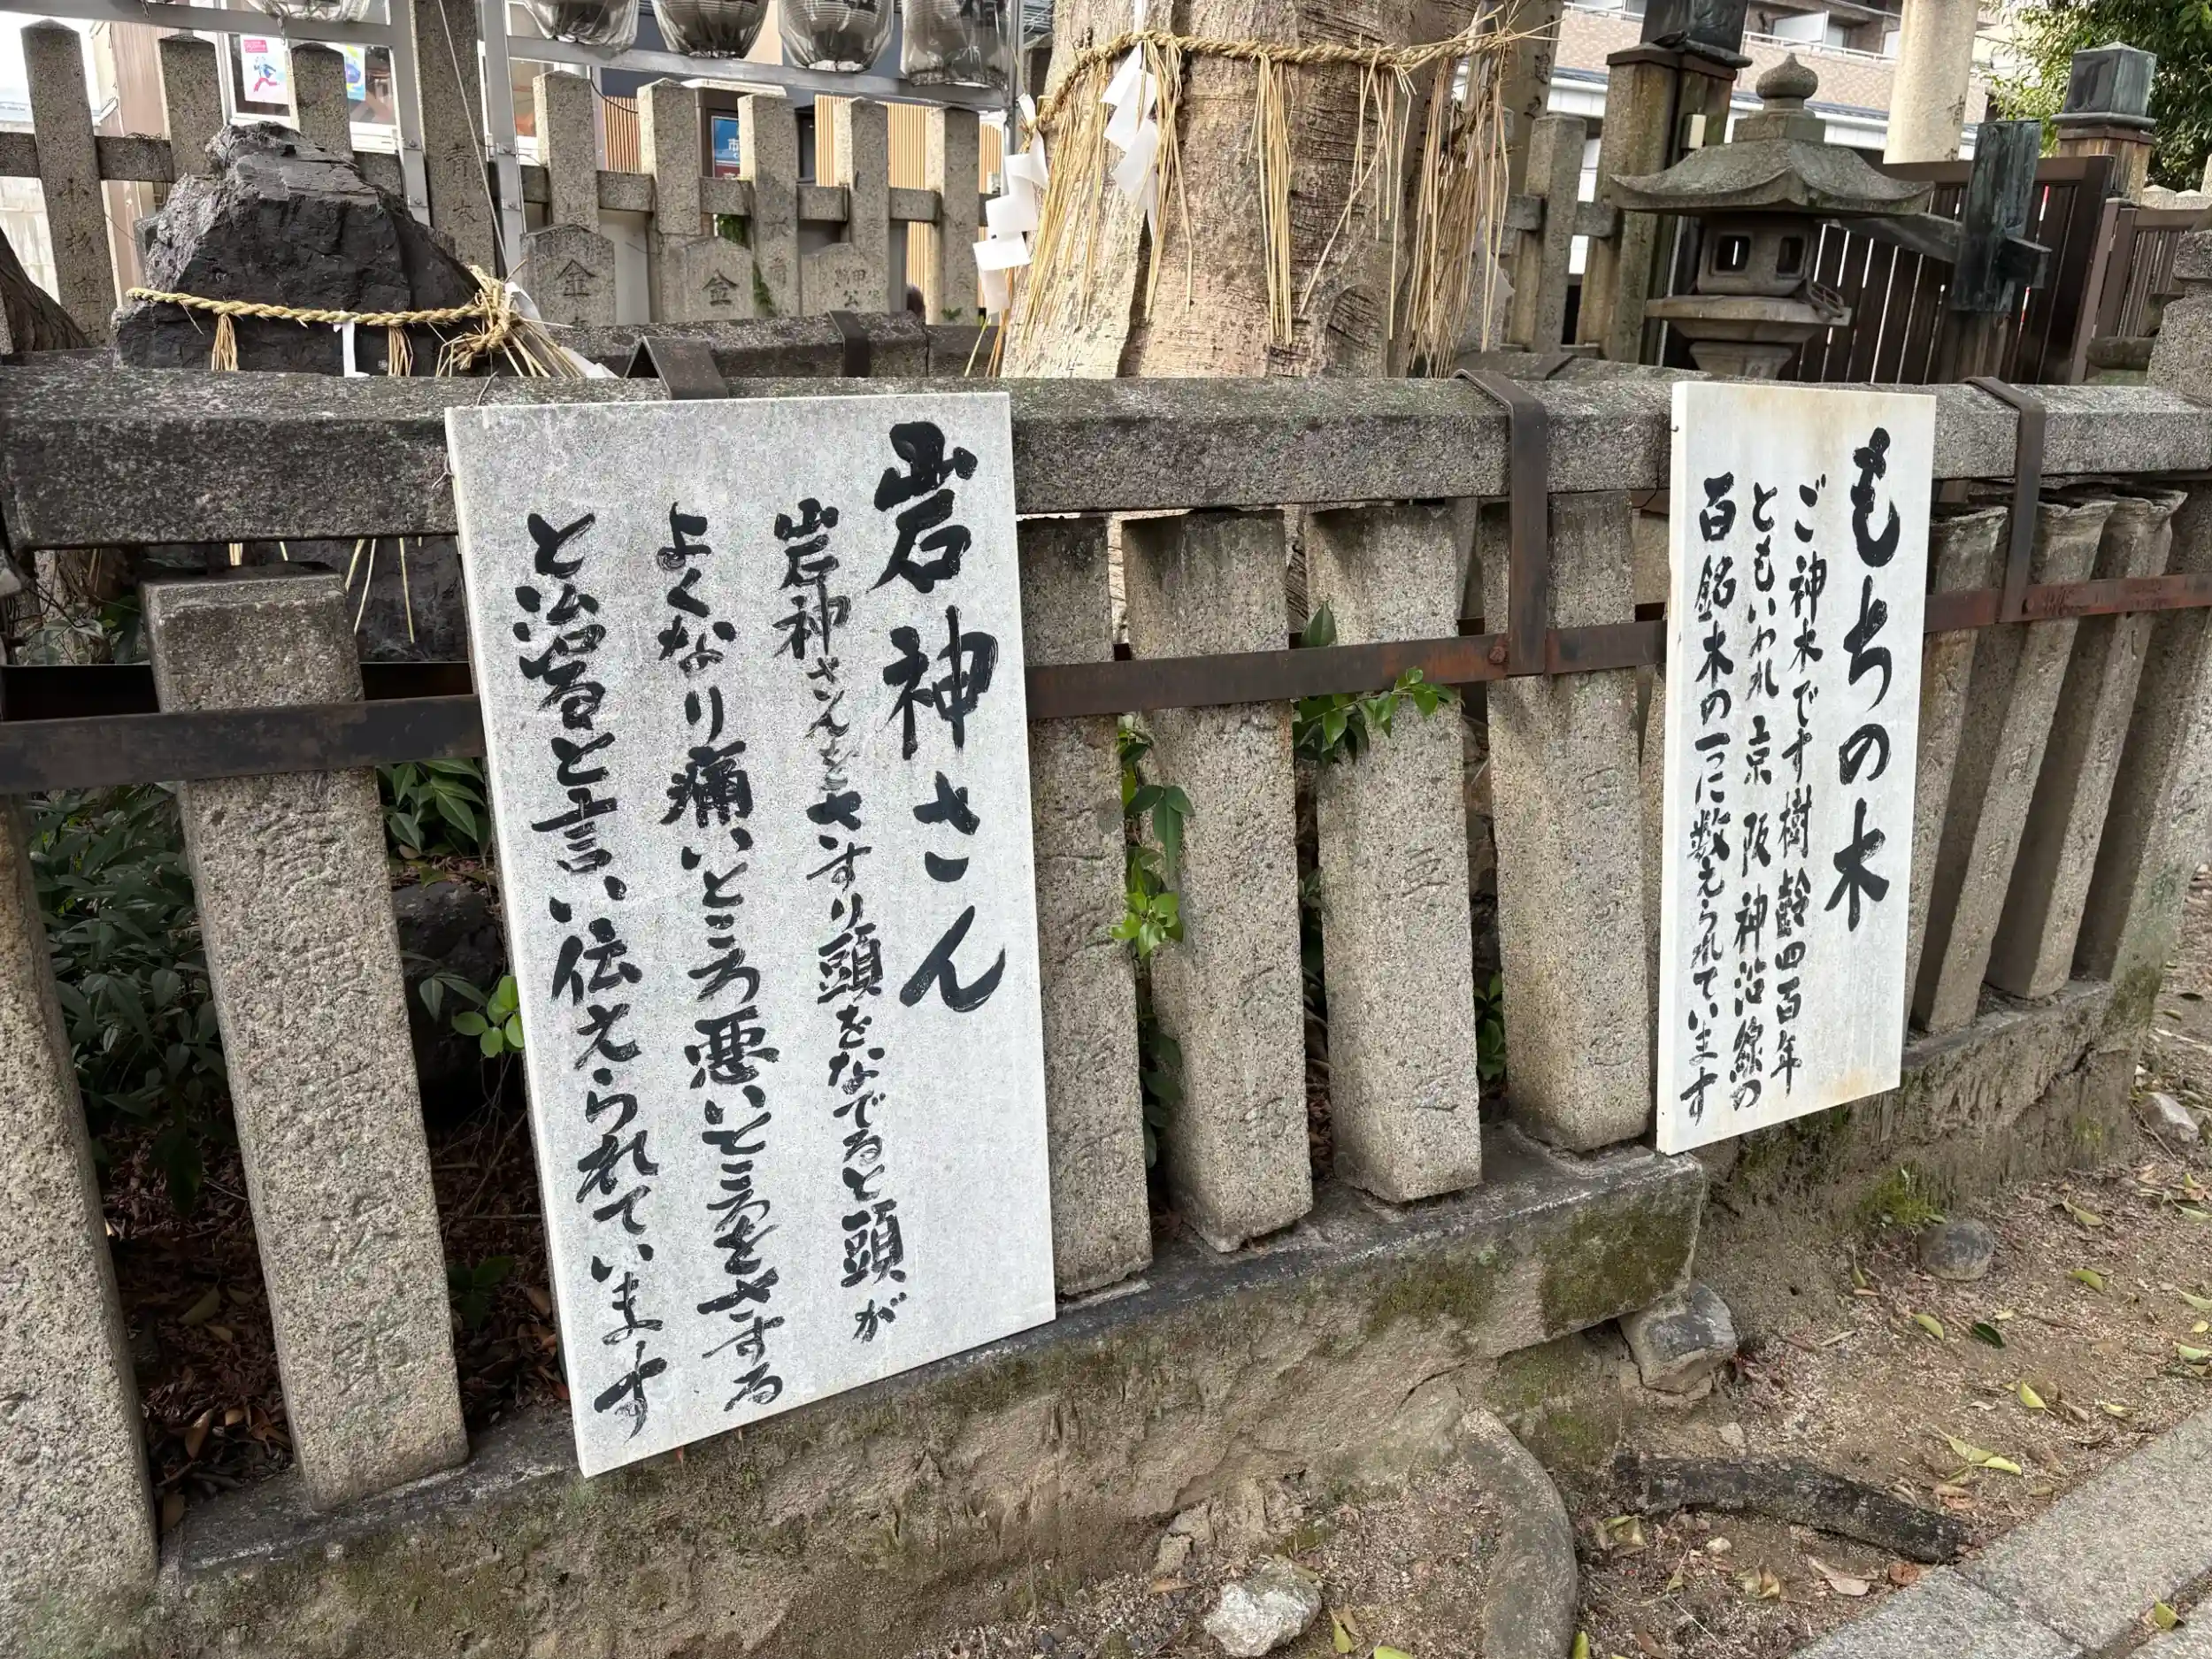 岩神さん
岩神さんをさすり頭をなでると頭が
よくなり痛いところ悪いところをさする
と治ると言い伝えられています
もちの木
ご神木です樹齢四百年
ともいわれ京阪神沿線の
百銘木の一つに数えられています
金
金